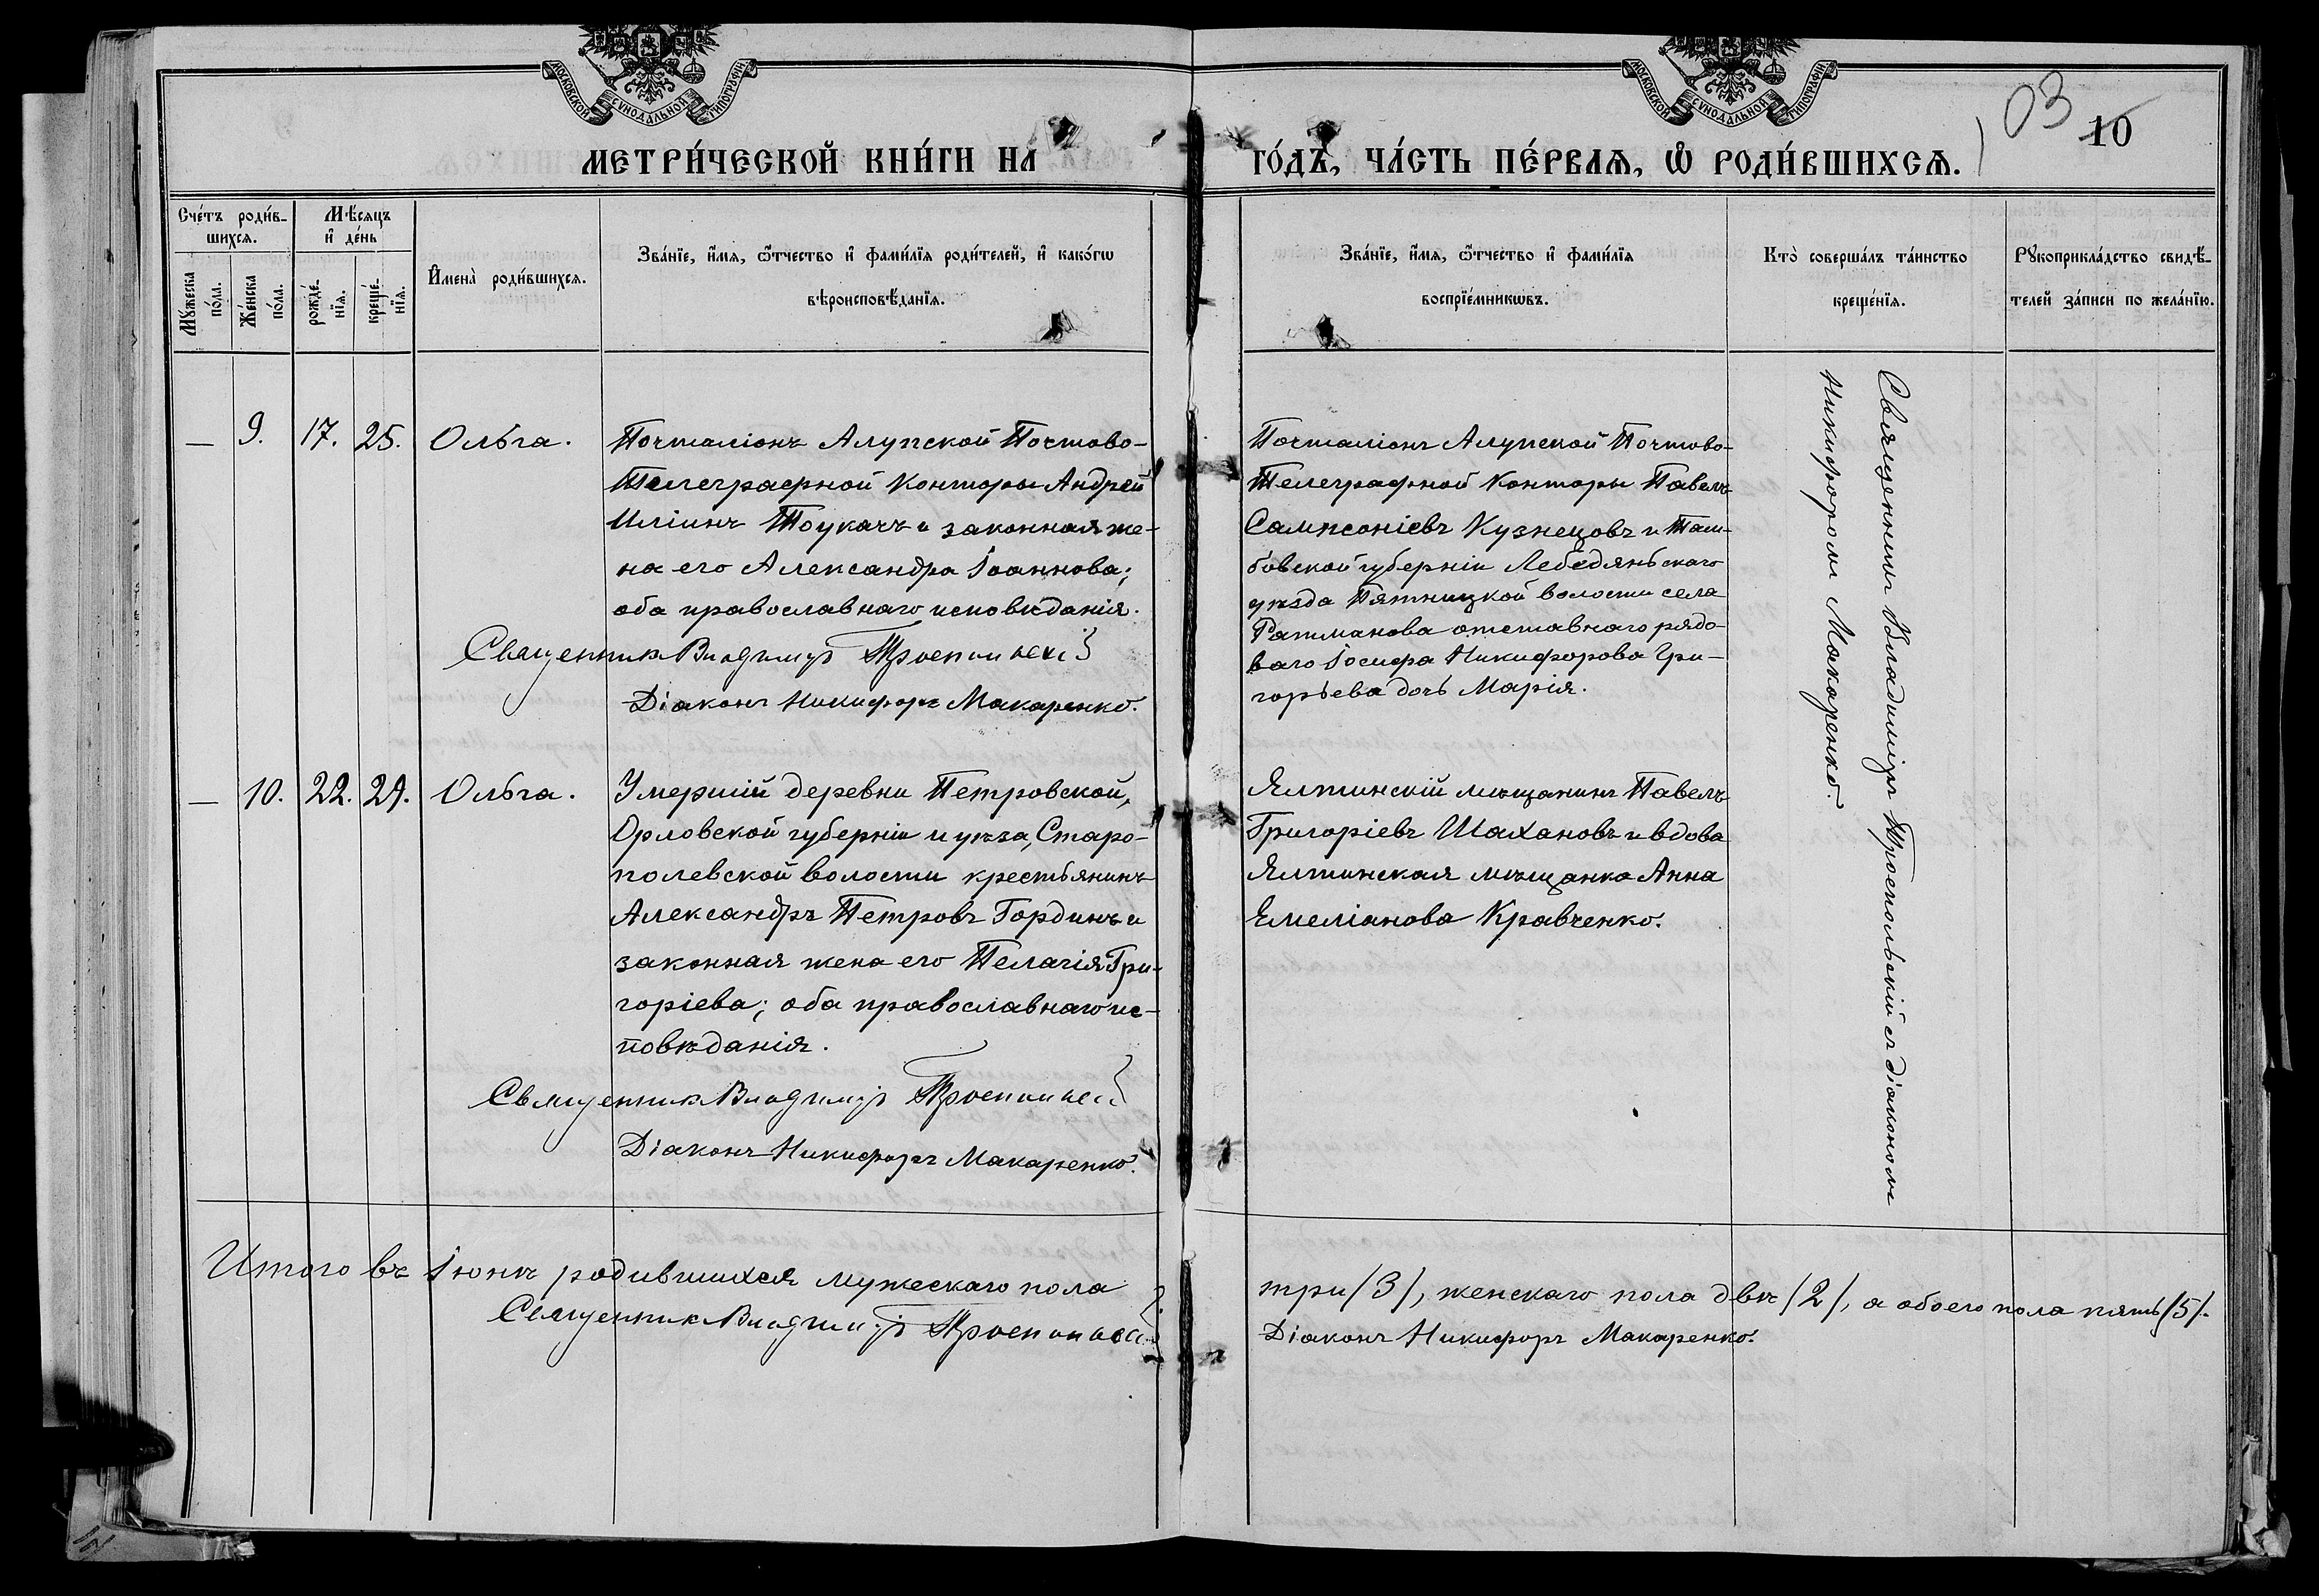 МОСКОВСКОЙ СѴНОДАЛЬНОЙ ТИПОГРАФІИ
МОСКОВСКОЙ СѴНОДАЛЬНОЙ ТИПОГРАФІИ
03
10
МЕТРИ́ЧЕСКОЙ КНИ́ГИ НА
ГО́ДЪ, ЧА́СТЬ ПЕ́РВАѦ, Ѽ РОДИ́ВШИХСѦ.
Сче́тъ роди́в-
шихсѧ.
Мѣ́сѧцъ
и҆ де́нь
Мꙋ́жеска
по́ла.
Же́нска
по́ла.
рожде́-
нїѧ.
креще́-
нїѧ.
И҆мена̀ роди́вшихсѧ.
Зва́нїе, и҆́мѧ, ѻ҆́тчество и҆ фами́лїѧ роди́телей, и҆ како́гѡ
вѣроисповѣ́данїѧ.
Зва́нїе, и҆́мѧ, ѻ҆́тчество и҆ фами́лїѧ
воспрїе́мникѡвъ.
Кто̀ соверша́лъ та́инство
креще́нїѧ.
Рꙋкоприкла́дство свидѣ́-
телей за́писи по жела́нїю.
— 9. 17. 25. Ольга.
Почталіонъ Алупской Почтово-
Телеграфной Конторы Андрей
Иліинъ Тоукачъ и законная же-
на его Александра Іоаннова;
оба православнаго исповѣданія.
Священникъ Владиміръ Троепольскій
Діаконъ Никифоръ Макаренко.
Почталіонъ Алупской Почтово-
Телеграфной Конторы Павелъ
Сампсоніевъ Кузнецовъ и Там-
бовской губерніи Лебедяньскаго
уѣзда Пятницкой волости села
Ратманова отставнаго рядо-
ваго Іосифа Никифорова Гри-
горьева дочь Марія.
Священникъ Владиміръ Троепольскій съ діакономъ
Никифоромъ Макаренко.
— 10. 22. 29. Ольга.
Умершій деревни Петровской,
Орловской губерніи и уѣза, Старо-
полевской волости крестьянинъ
Александръ Петровъ Гординъ и
законная жена его Пелагія Гри-
горіева; оба православнаго ис-
повѣданія.
Священникъ Владиміръ Троепольскій
Діаконъ Никифоръ Макаренко.
Ялтинскій мѣщанинъ Павелъ
Григоріевъ Шахановъ и вдова
Ялтинская мѣщанка Анна
Емеліанова Кравченко.
Итого въ Іюнѣ родившихся мужескаго пола
три /3/, женскаго пола двѣ /2/, а обоего пола пять /5/.
Священникъ Владиміръ Троепольскій
Діаконъ Никифоръ Макаренко.